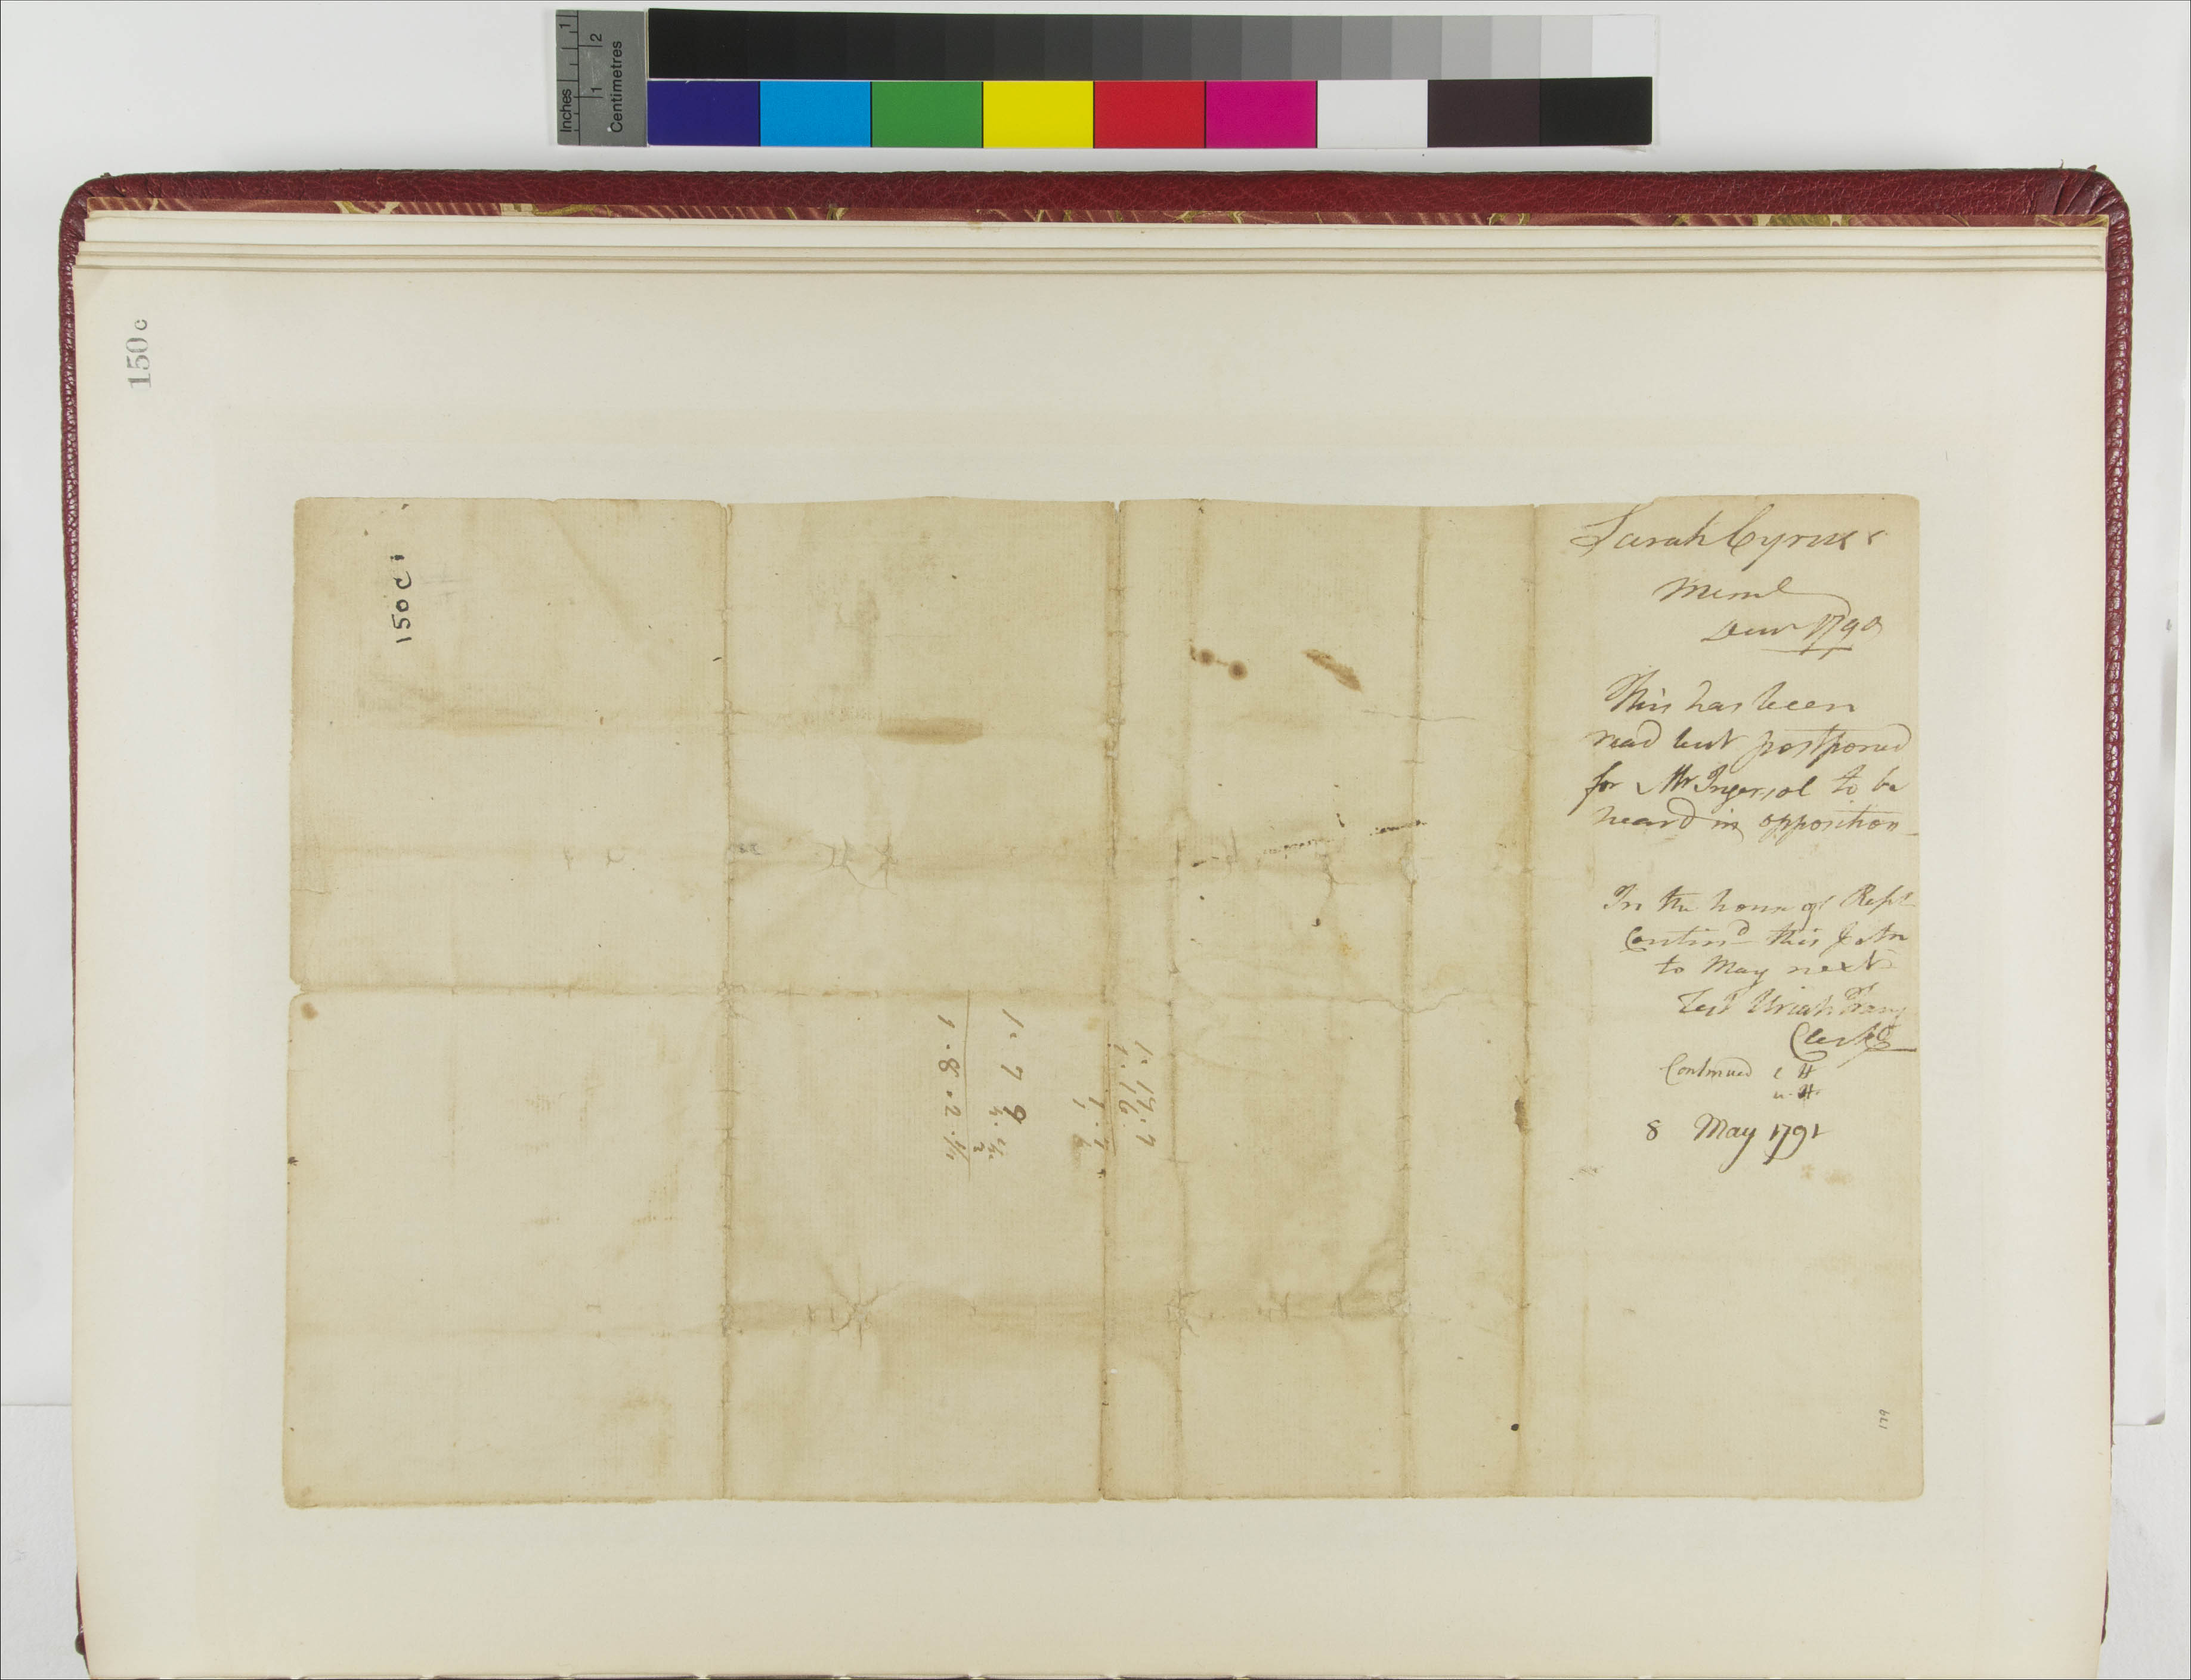 Inches
1
Centimetres
1
2
150c
150 c i
Sarah Cyrus's
Meml
1790
This has been
read but postponed
for Mr Ingersol to be
heard in opposition
In the house of Repts
Contind this Petn
to May next
Test Uriah
Clerk
Continued
8 May 1791
1. 17. 7
1. 7
1. 8. 2. 1/2
179